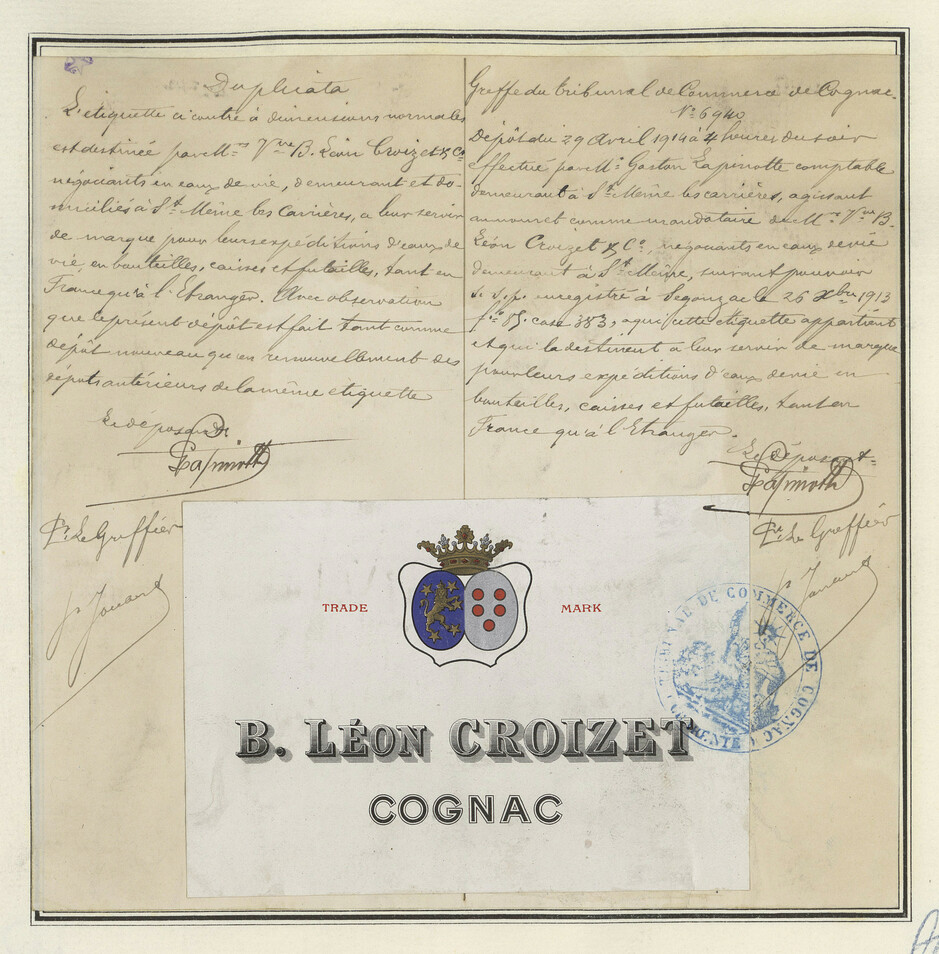 Duplicata
L'étiquette ci contre à dimensions normales
est destinée par M.rs Vve B. Léon Croizet & Cº
négociants en eaux de vie, demeurant et do-
miciliés à St Même les Carrières, a leur servir
de marque pour leurs expéditions d'eaux de
vie en bouteilles, caisses et futailles, tant en
France qu'à l'Etranger. Avec observation
que le présent dépôt est fait tant comme
dépôt nouveau qu'en renouvellement des
dépôts antérieurs de la même etiquette
Le déposant
Pr. Le Greffier
Greffe du tribunal de Commerce de Cognac.
Nº 6940
Dépôt du 29 Avril 1914 à 4 heures du soir
effectué par Mr Gaston Lapinotte comptable
demeurant à St Même les carrières, agissant
au nom et comme mandataire de M.rs Vve B.
Léon Croizet & Cº, négociants en eaux de vie
demeurant à St Même, suivant pouvoir
s. s. p. enregistré à Segonzac le 26 Xbre 1913
fº 85. case 383, a qui cette etiquette appartient
et qui la destinent a leur servir de marque
pour leurs expéditions d'eaux de vie en
bouteilles, caisses et futailles, tant en
France qu'à l'Etranger.
Le déposant
Pr. Le Greffier
TRADE MARK
B. LÉON CROIZET
COGNAC
TRIBUNAL DE COMMERCE DE COGNAC
CHARENTE